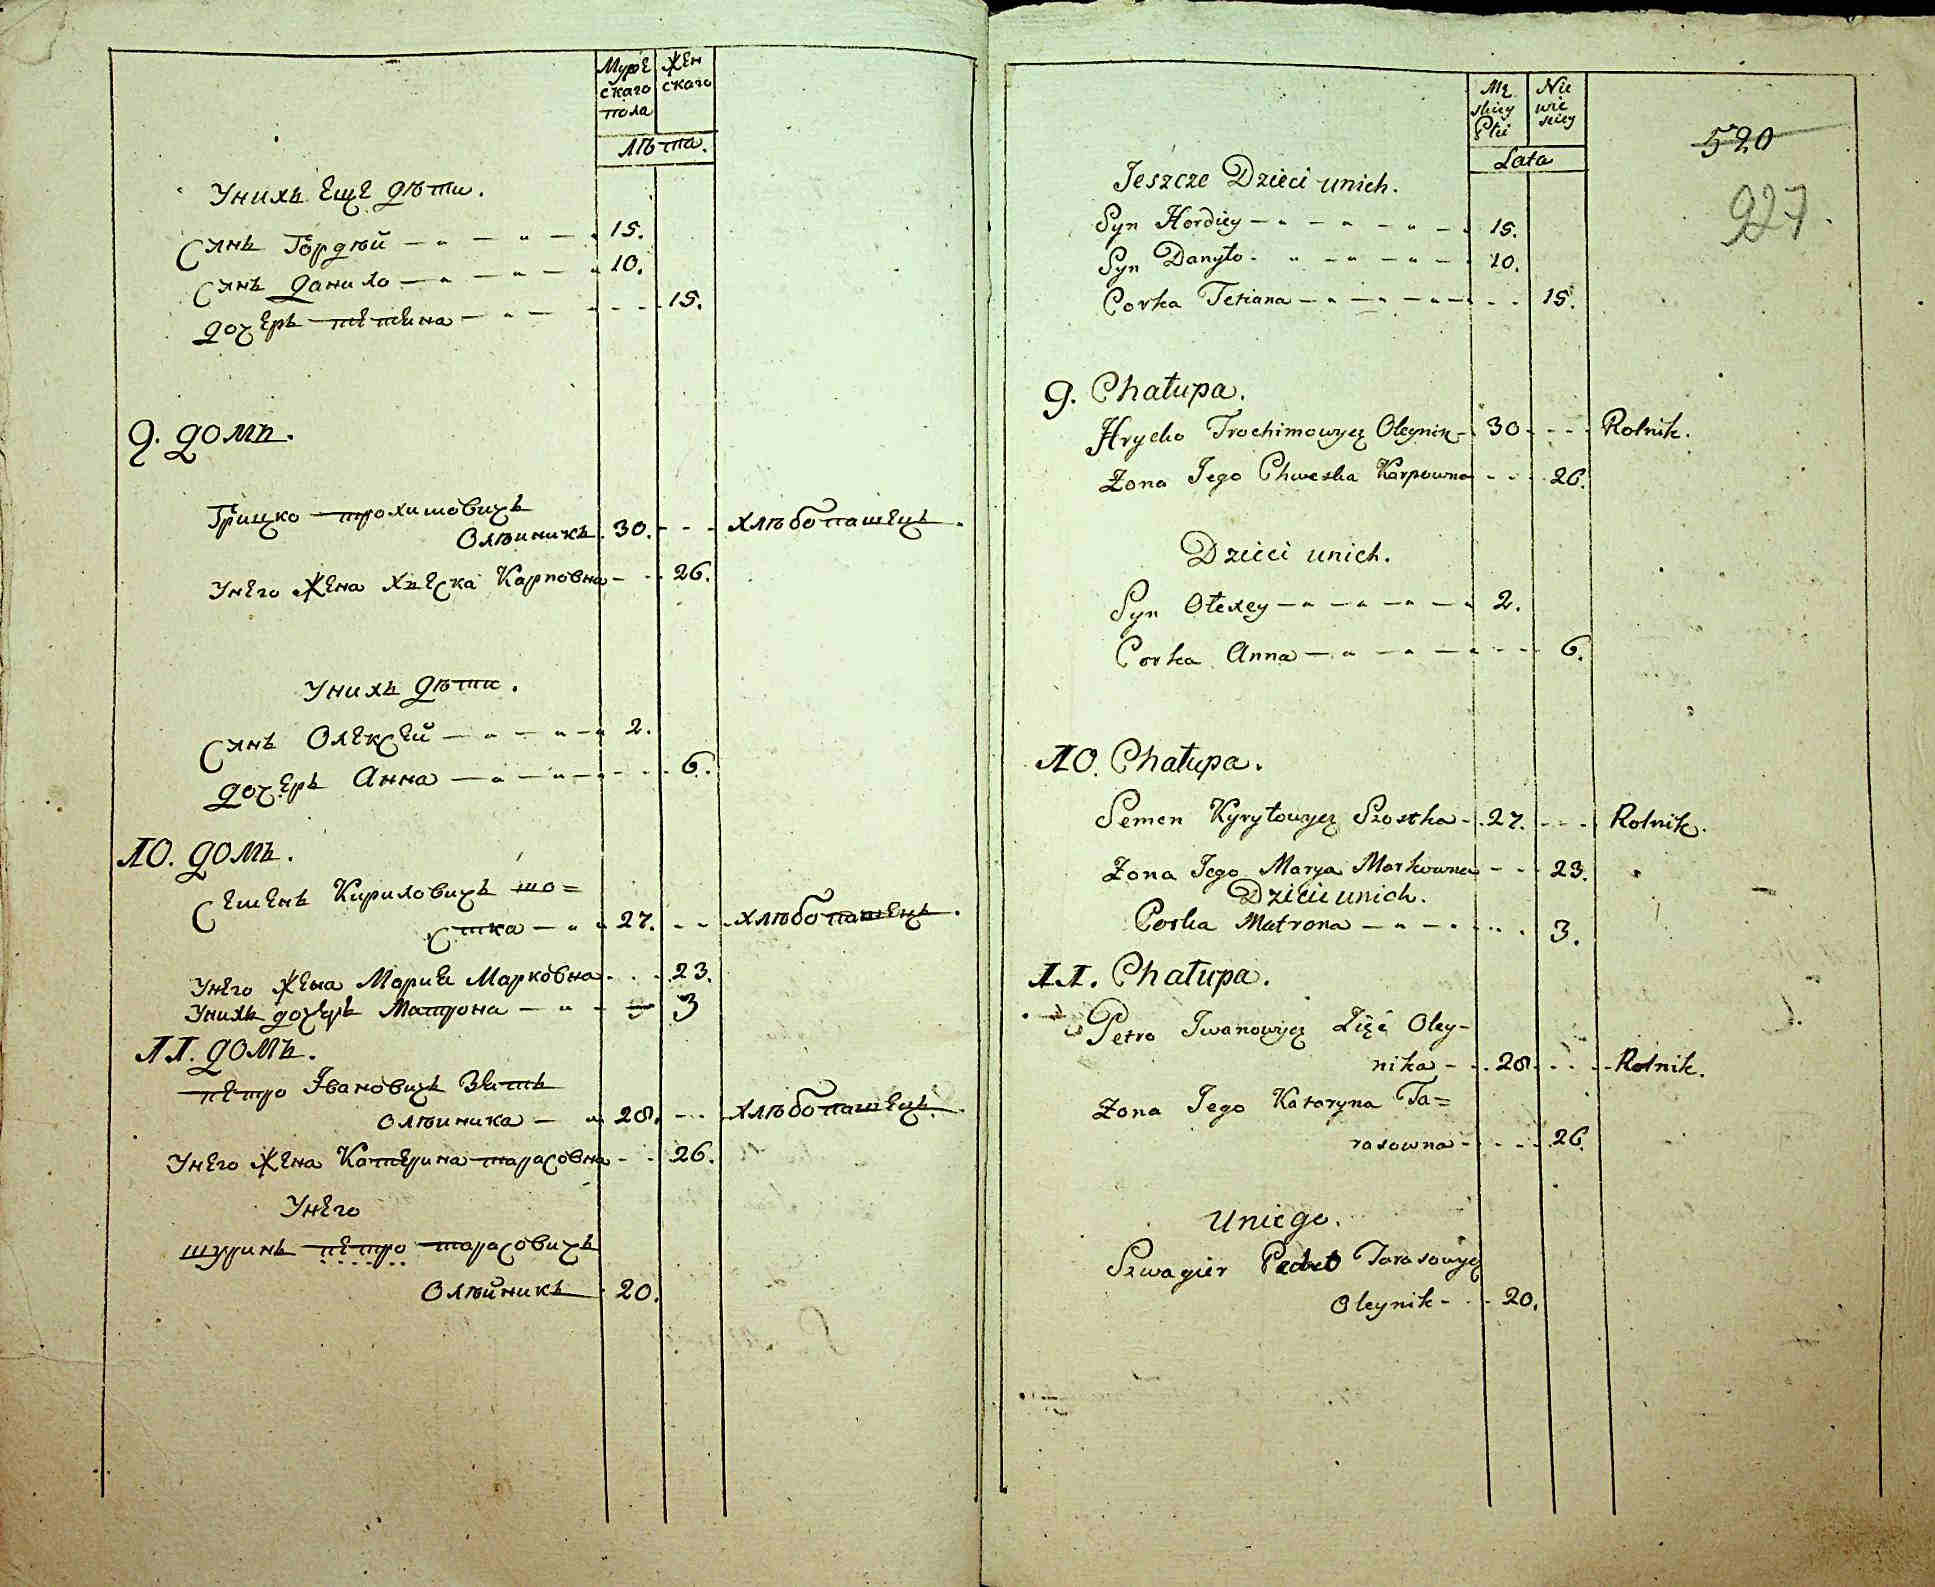 Муже Жен
скаго скаго
пола
Лѣта.
Унихъ Еще дѣти.
Сынъ Гордѣй 15.
Сынъ Данило 10.
Дочерь Тетяна 15.
9. Домъ.
Грицко Трохимовичъ
Олѣиникъ 30. Хлѣбопашецъ.
Унего Жена Хвеска Карповна 26.
Унихъ Дѣти.
Сынъ Олексей 2.
Дочерь Анна 6.
10. Домъ.
Семенъ Кириловичъ Шо=
стка 27. Хлѣбопашецъ.
Унего Жена Мария Марковна 23.
Унихъ дочерь Матрона 3
11. Домъ.
Петро Івановичъ Зять
Олѣиника 28. Хлѣбопашецъ.
Унего Жена Катерина Тарасовна 26.
Унего
Шуринъ Петро Тарасовичъ
Олѣйникъ 20.
Mę Nie
skiey wie
Płci sciey
Lata
520
927.
Jeszcze Dzieci unich.
Syn Hordiey 15.
Syn Danyło 10.
Corka Tetiana 15.
9. Chałupa.
Hrycko Trochimowycz Oleynik 30 Rolnik.
Żona Jego Chweska Karpowna 26.
Dzieci unich.
Syn Ołexey 2.
Corka Anna 6.
10. Chałupa.
Semen Kyryłowycz Szostka 27. Rolnik.
Żona Jego Marya Markowna 23.
Dzieci unich.
Corka Matrona 3.
11. Chałupa.
Petro Jwanowycz Zięć Oley-
nika 28 Rolnik.
Żona Jego Kataryna Ta=
rasowna 26.
Uniego.
Szwagier Tarasowycz
Oleynik 20.